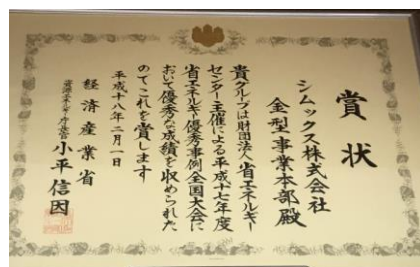 賞状
シムックス株式会社
金型事業本部殿
貴グループは財団法人省エネルギー
センター主催による平成十七年度
省エネルギー優秀事例全国大会に
おいて優秀な成績を収められた
のでこれを賞します
平成十八年二月一日
経済産業省
資源エネルギー庁長官
小平信因